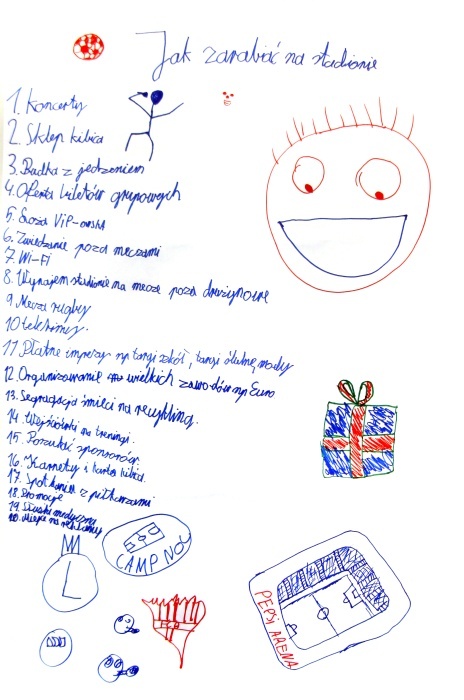 Jak zarabiać na stadionie
1. Koncerty
2. Sklep kibica
3. Budka z jedzeniem
4. Oferta biletów grupowych
5. Loża ViP-owska
6. Zwiedzanie poza meczami
7. Wi-Fi
8. Wynajem stadionu na mecze poza drużynowe
9 Mecze rugby
10 telebimy.
11. Płatne imprezy np targi szkół, targi ślubne, mody
12. Organizowanie wielkich zawodów np Euro
13. Segregacja śmieci na recykling.
14. Wejściówki na treningi.
15. Poszukać sponsorów.
16. Karnety i karta kibica.
17. Spotkania z piłkarzami
18. Promocje
19. medyczna
20. Miejsce na reklamę
CAMP NOU
L
PEPSI ARENA